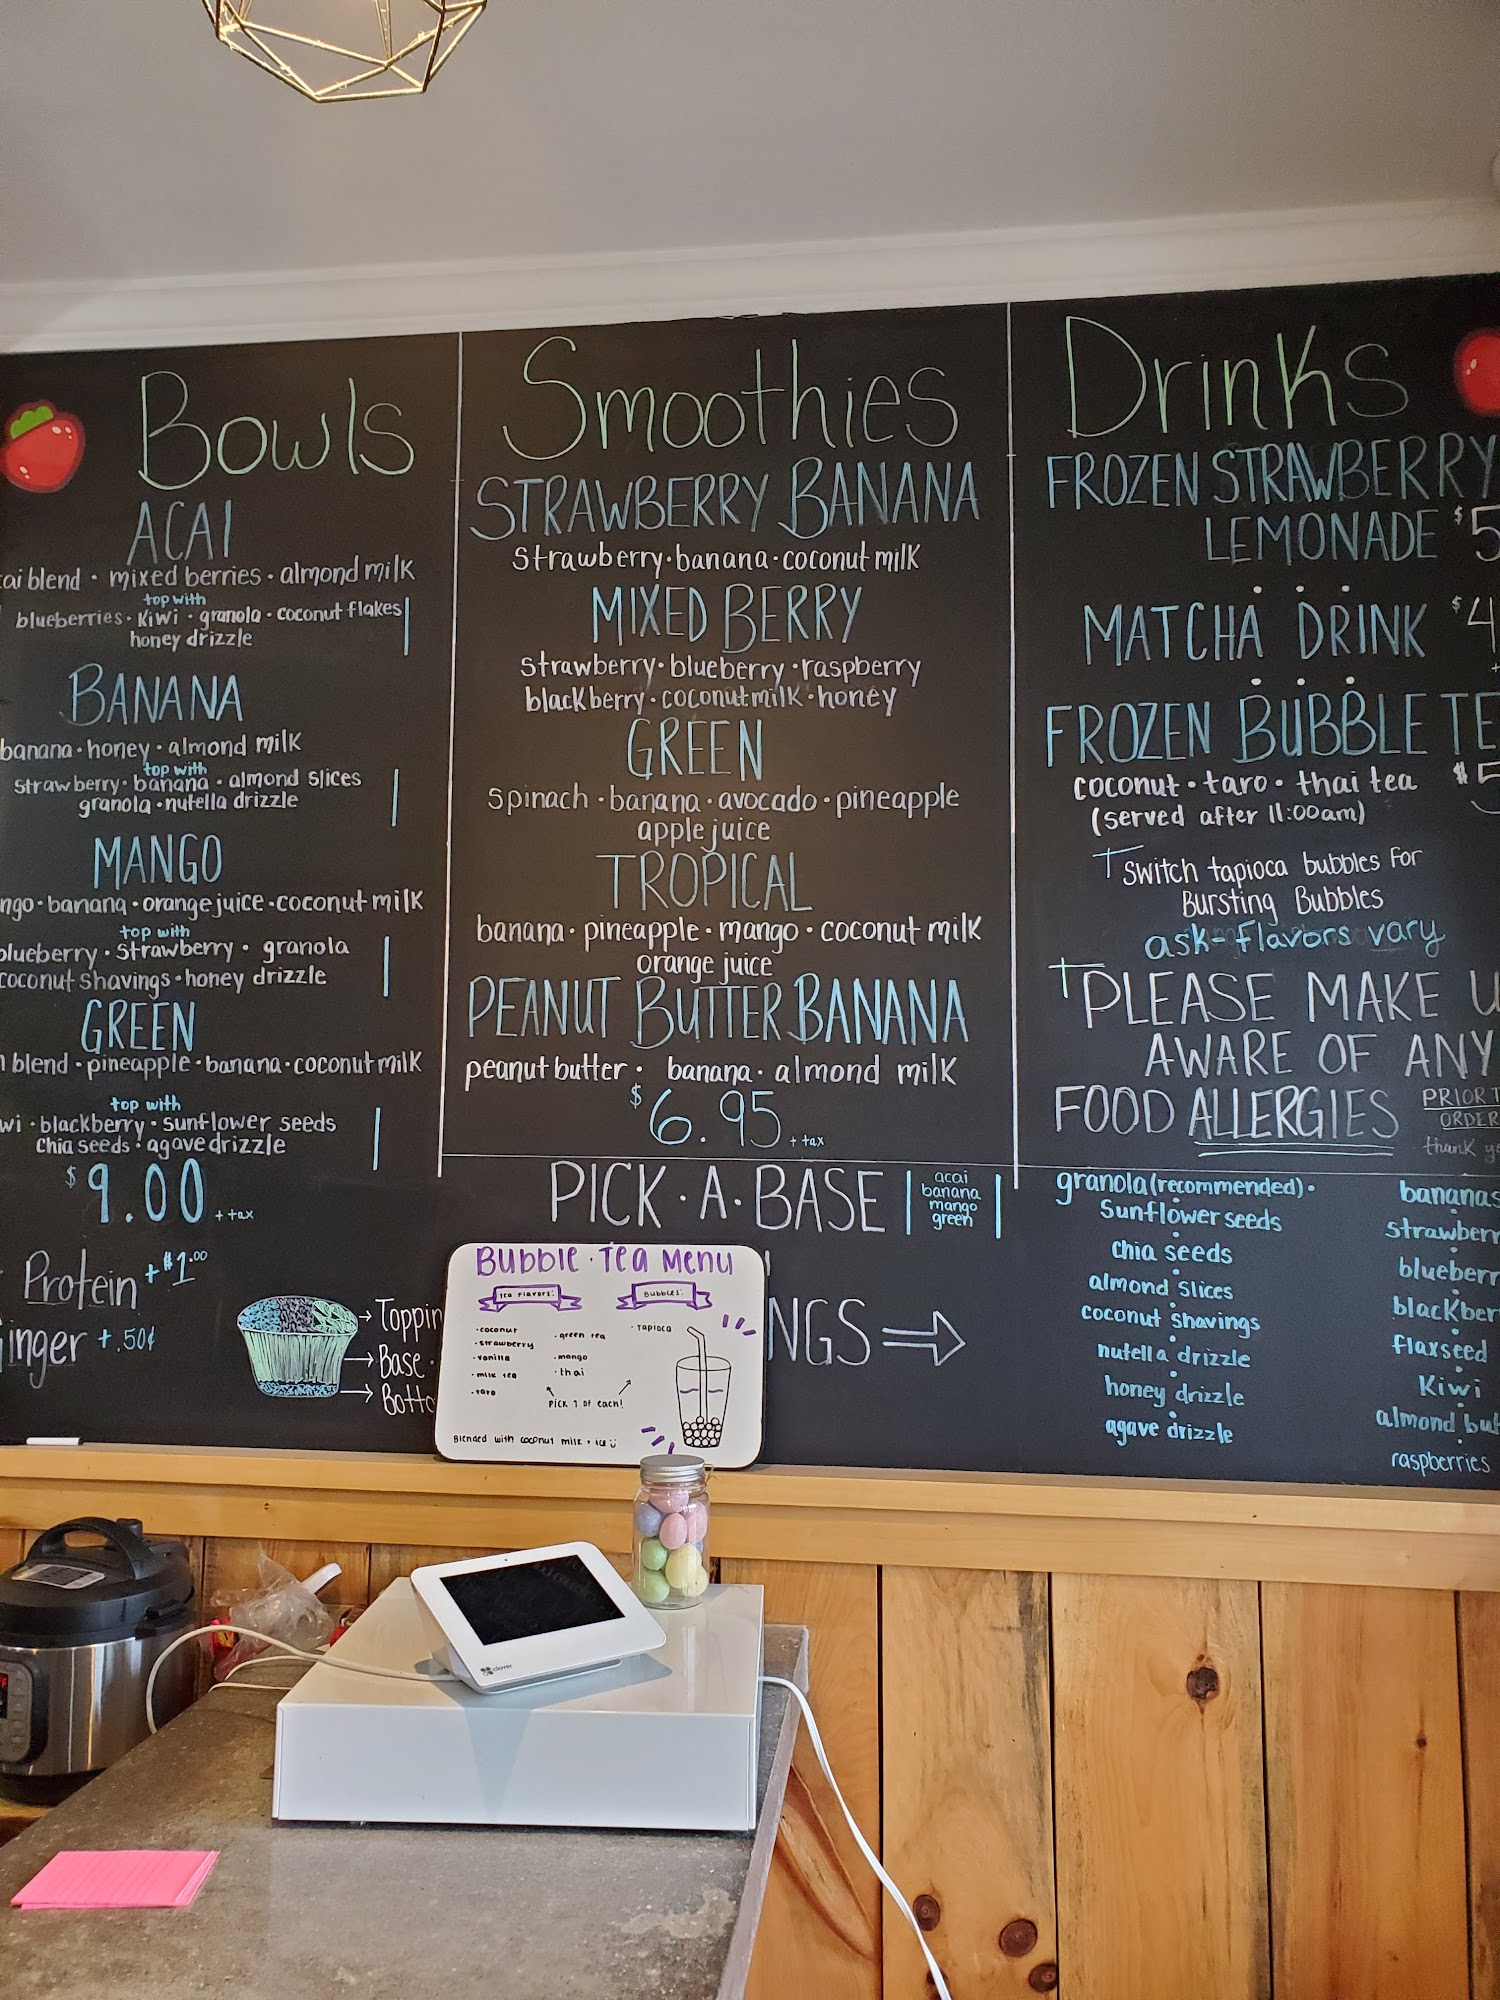 Bowls
ACAI
blend • mixed berries • almond milk
top with
blueberries • kiwi • granola • coconut flakes
honey drizzle
BANANA
banana • honey • almond milk
top with
strawberry • banana • almond slices
granola • nutella drizzle
MANGO
banana • orange juice • coconut milk
top with
blueberry • strawberry • granola
coconut shavings • honey drizzle
GREEN
blend • pineapple • banana • coconut milk
top with
blackberry • sunflower seeds
chia seeds • agave drizzle
$9.00 + tax
Protein +$1.00
+.50¢
Base
Smoothies
STRAWBERRY BANANA
strawberry • banana • coconut milk
MIXED BERRY
strawberry • blueberry • raspberry
blackberry • coconut milk • honey
GREEN
spinach • banana • avocado • pineapple
apple juice
TROPICAL
banana • pineapple • mango • coconut milk
orange juice
PEANUT BUTTER BANANA
peanut butter • banana • almond milk
$6.95 + tax
PICK • A • BASE
acai
banana
mango
green
NGS
Bubble • Tea Menu
Tea Flavors:
• coconut
• strawberry
• vanilla
• milk tea
• taro
• green tea
• mango
• thai
Bubbles:
• Tapioca
Pick 1 of each!
Blended with coconut milk + ice
clover
Drinks
FROZEN STRAWBERRY
LEMONADE $5
MATCHA DRINK $4
FROZEN BUBBLE TE
coconut • taro • thai tea $5
(served after 11:00am)
Switch tapioca bubbles for
Bursting Bubbles
ask - flavors vary
PLEASE MAKE U
AWARE OF ANY
FOOD ALLERGIES
PRIOR T
ORDER
thank y
granola (recommended) •
sunflower seeds
chia seeds
almond slices
coconut shavings
nutella drizzle
honey drizzle
agave drizzle
bananas
strawberr
blueberr
blackber
flaxseed
kiwi
almond but
raspberries